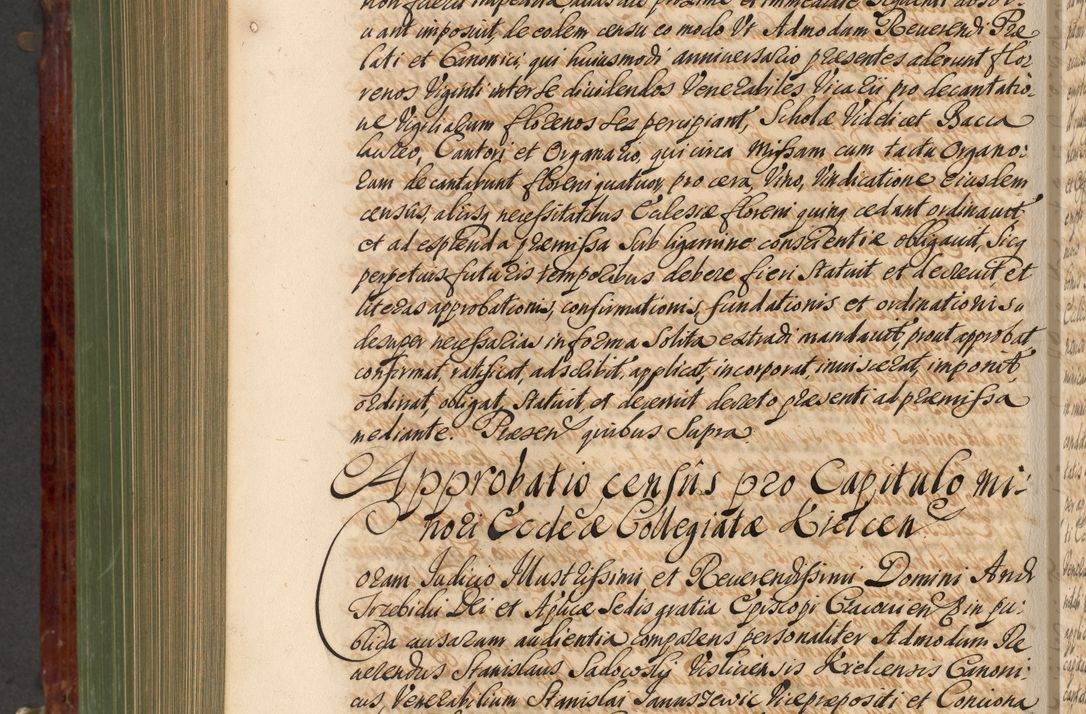 non fuerit impedita, alias die proximo et immediate sequenti absol:
uant imposuit de eodem censu eo modo Ut Admodum Reuerendi Præ
lati et Canonici, qui huiusmodi anniuersario præsentes aderunt flor
renos Viginti inter se diuidendos Venerabiles Vicarii pro decantatio:
ne Vigiliarum florenos sex percipiant, Scholæ Videlicet Bacca
laureo, Cantori et Organario, qui circa Missam cum tactu Organo:
rum decantabunt floreni quatuor, pro cera, Vino, Vindicatione eiusdem
censûs, aliisq necessitatibus Ecclesiæ floreni quinq cedant ordinauit
et ad explenda præmissa sub ligamine conscientiæ obligauit, Sicq
perpetuis futuris temporibus debere fieri statuit et decreuit, et
literas approbationis, confirmationis, fundationis et ordinationis a
desuper necessarias in forma solita extradi mandauit, prout approbat
confirmat, ratificat, adscribit, applicat, incorporat, inuiscerat, imponit,
ordinat, obligat, statuit, et decernit decreto præsenti ad præmissa
mediante. Præsen quibus Supra
Approbatio censûs pro Capitulo mi:
nori Ecclæ Collegiatæ Kielcen
Coram Judicio Illustrissimi et Reuerendissimi Domini Andr
Trzebicki Dei et Aplicæ Sedis gratia Episcopi Cracouien & in pu:
blica causarum audientia comparens personaliter Admodum Re
uerendus Stanislaus Sadowski Visliciensis Kielcensis Canoni:
cus Venerabilium Stanislai Januszewic Vicepræpositi et Conciona